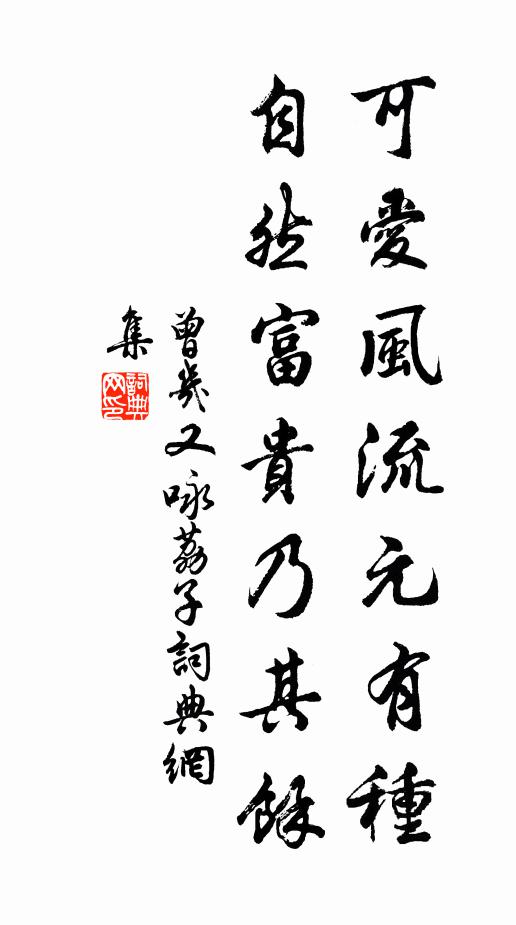 可愛風流元有種
自然富貴乃其餘
曾幾又咏荔子詞典網
集
詞典網印